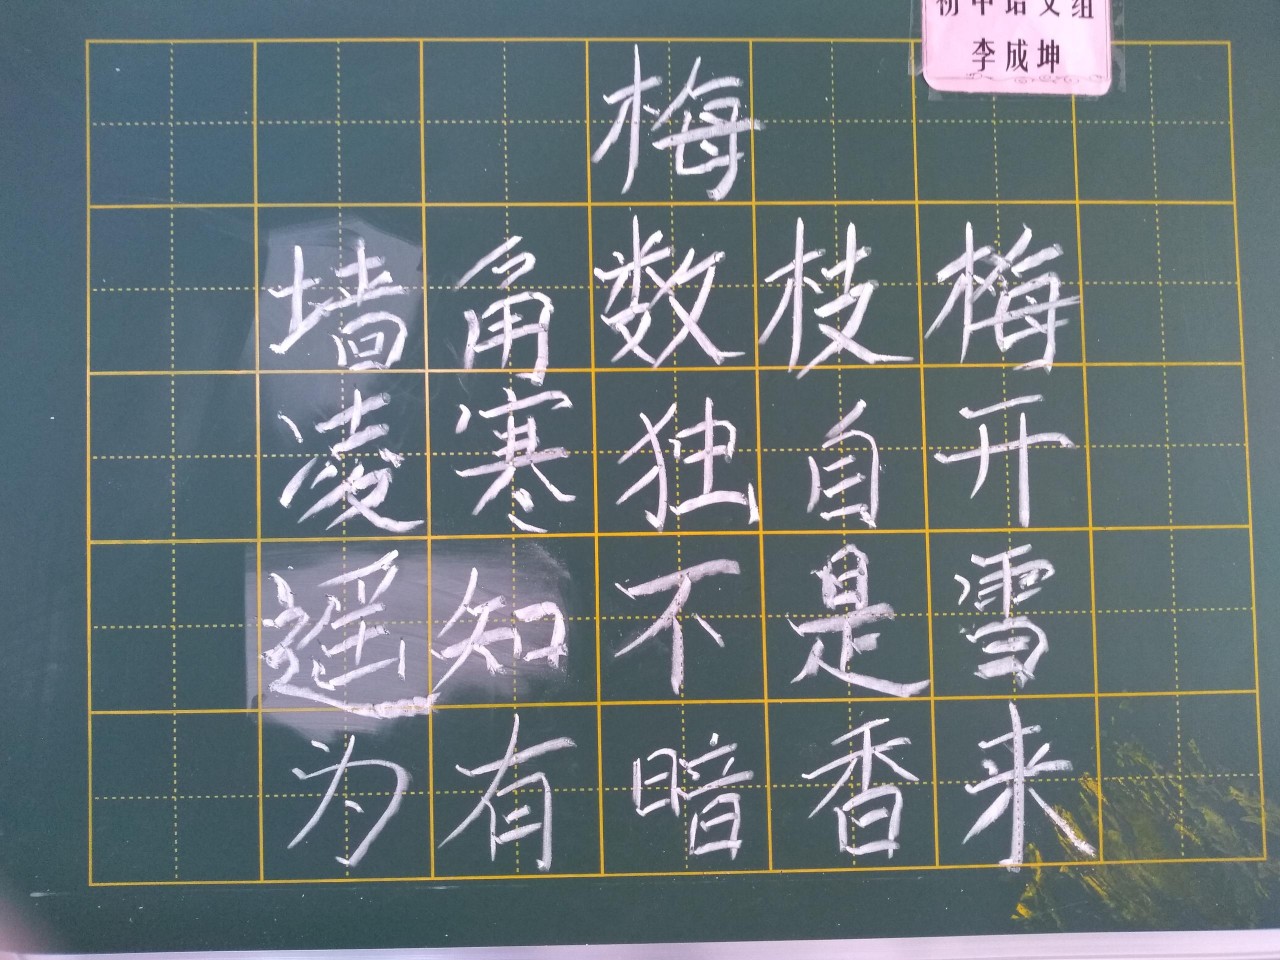 初中语文组
李成坤
梅
墙角数枝梅
凌寒独自开
遥知不是雪
为有暗香来